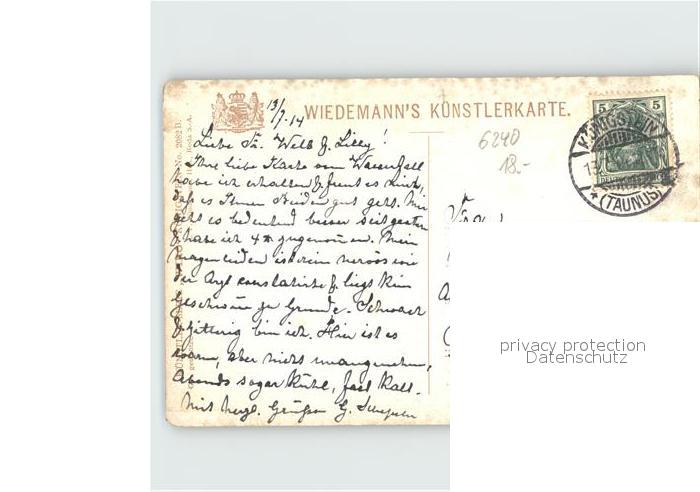 WIEDEMANN'S KÜNSTLERKARTE.
13/7.14
5 5
KÖNIGSTEIN
13.
* (TAUNUS)
6240
18.-
No. 2082 B.
Liebe Fr. Welb & Lilly!
Ihre liebe Karte vom Wasserfall
habe ich erhalten & freut es
daß es Ihnen Beiden gut geht. Mir
geht es bedeutend besser seit gestern
& habe ich 4 zugenommen. Mein
Magenleiden ist rein nervös wie
der Arzt constatirte & liegt kein
Geschwür zu Grunde. Schwach
& zitterig bin ich. Hier ist es
warm, aber nicht unangenehm,
Abends sogar kühl, fast kalt.
Mit herzl. Grüßen G.
Frau
privacy protection
Datenschutz